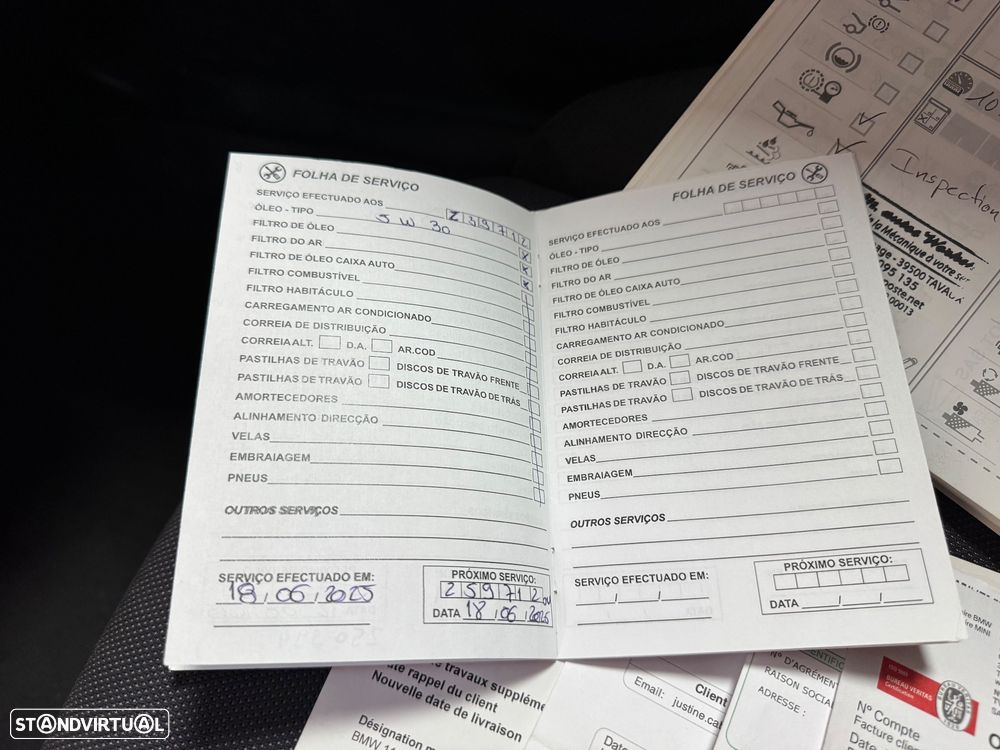 FOLHA DE SERVIÇO
SERVIÇO EFECTUADO AOS 239712
ÓLEO - TIPO 5W30
FILTRO DE ÓLEO X
FILTRO DO AR X
FILTRO DE ÓLEO CAIXA AUTO
FILTRO COMBUSTÍVEL X
FILTRO HABITÁCULO
CARREGAMENTO AR CONDICIONADO
CORREIA DE DISTRIBUIÇÃO
CORREIA ALT. D.A. AR.COD
PASTILHAS DE TRAVÃO DISCOS DE TRAVÃO FRENTE
PASTILHAS DE TRAVÃO DISCOS DE TRAVÃO DE TRÁS
AMORTECEDORES
ALINHAMENTO DIRECÇÃO
VELAS
EMBRAIAGEM
PNEUS
OUTROS SERVIÇOS
SERVIÇO EFECTUADO EM:
18,06,2025
PRÓXIMO SERVIÇO:
259712 ou
DATA 18,06,2025
FOLHA DE SERVIÇO
SERVIÇO EFECTUADO AOS
ÓLEO - TIPO
FILTRO DE ÓLEO
FILTRO DO AR
FILTRO DE ÓLEO CAIXA AUTO
FILTRO COMBUSTÍVEL
FILTRO HABITÁCULO
CARREGAMENTO AR CONDICIONADO
CORREIA DE DISTRIBUIÇÃO
CORREIA ALT. D.A. AR.COD
PASTILHAS DE TRAVÃO DISCOS DE TRAVÃO FRENTE
PASTILHAS DE TRAVÃO DISCOS DE TRAVÃO DE TRÁS
AMORTECEDORES
ALINHAMENTO DIRECÇÃO
VELAS
EMBRAIAGEM
PNEUS
OUTROS SERVIÇOS
SERVIÇO EFECTUADO EM:
PRÓXIMO SERVIÇO:
DATA
10
Inspection
la Mécanique à votre ser
39500 TAVA
095 135
poste.net
00013
e travaux suppléme
te rappel du client
Nouvelle date de livraison
Désignation m
BMW 11
Client
Email: justine.ca
Date
N° D'AGRÉMEN
RAISON SOCIA
ADRESSE :
ISO 9001
BUREAU VERITAS
Certification
N° Compte
Facture clie
ire BMW
re MINI
STANDVIRTUAL